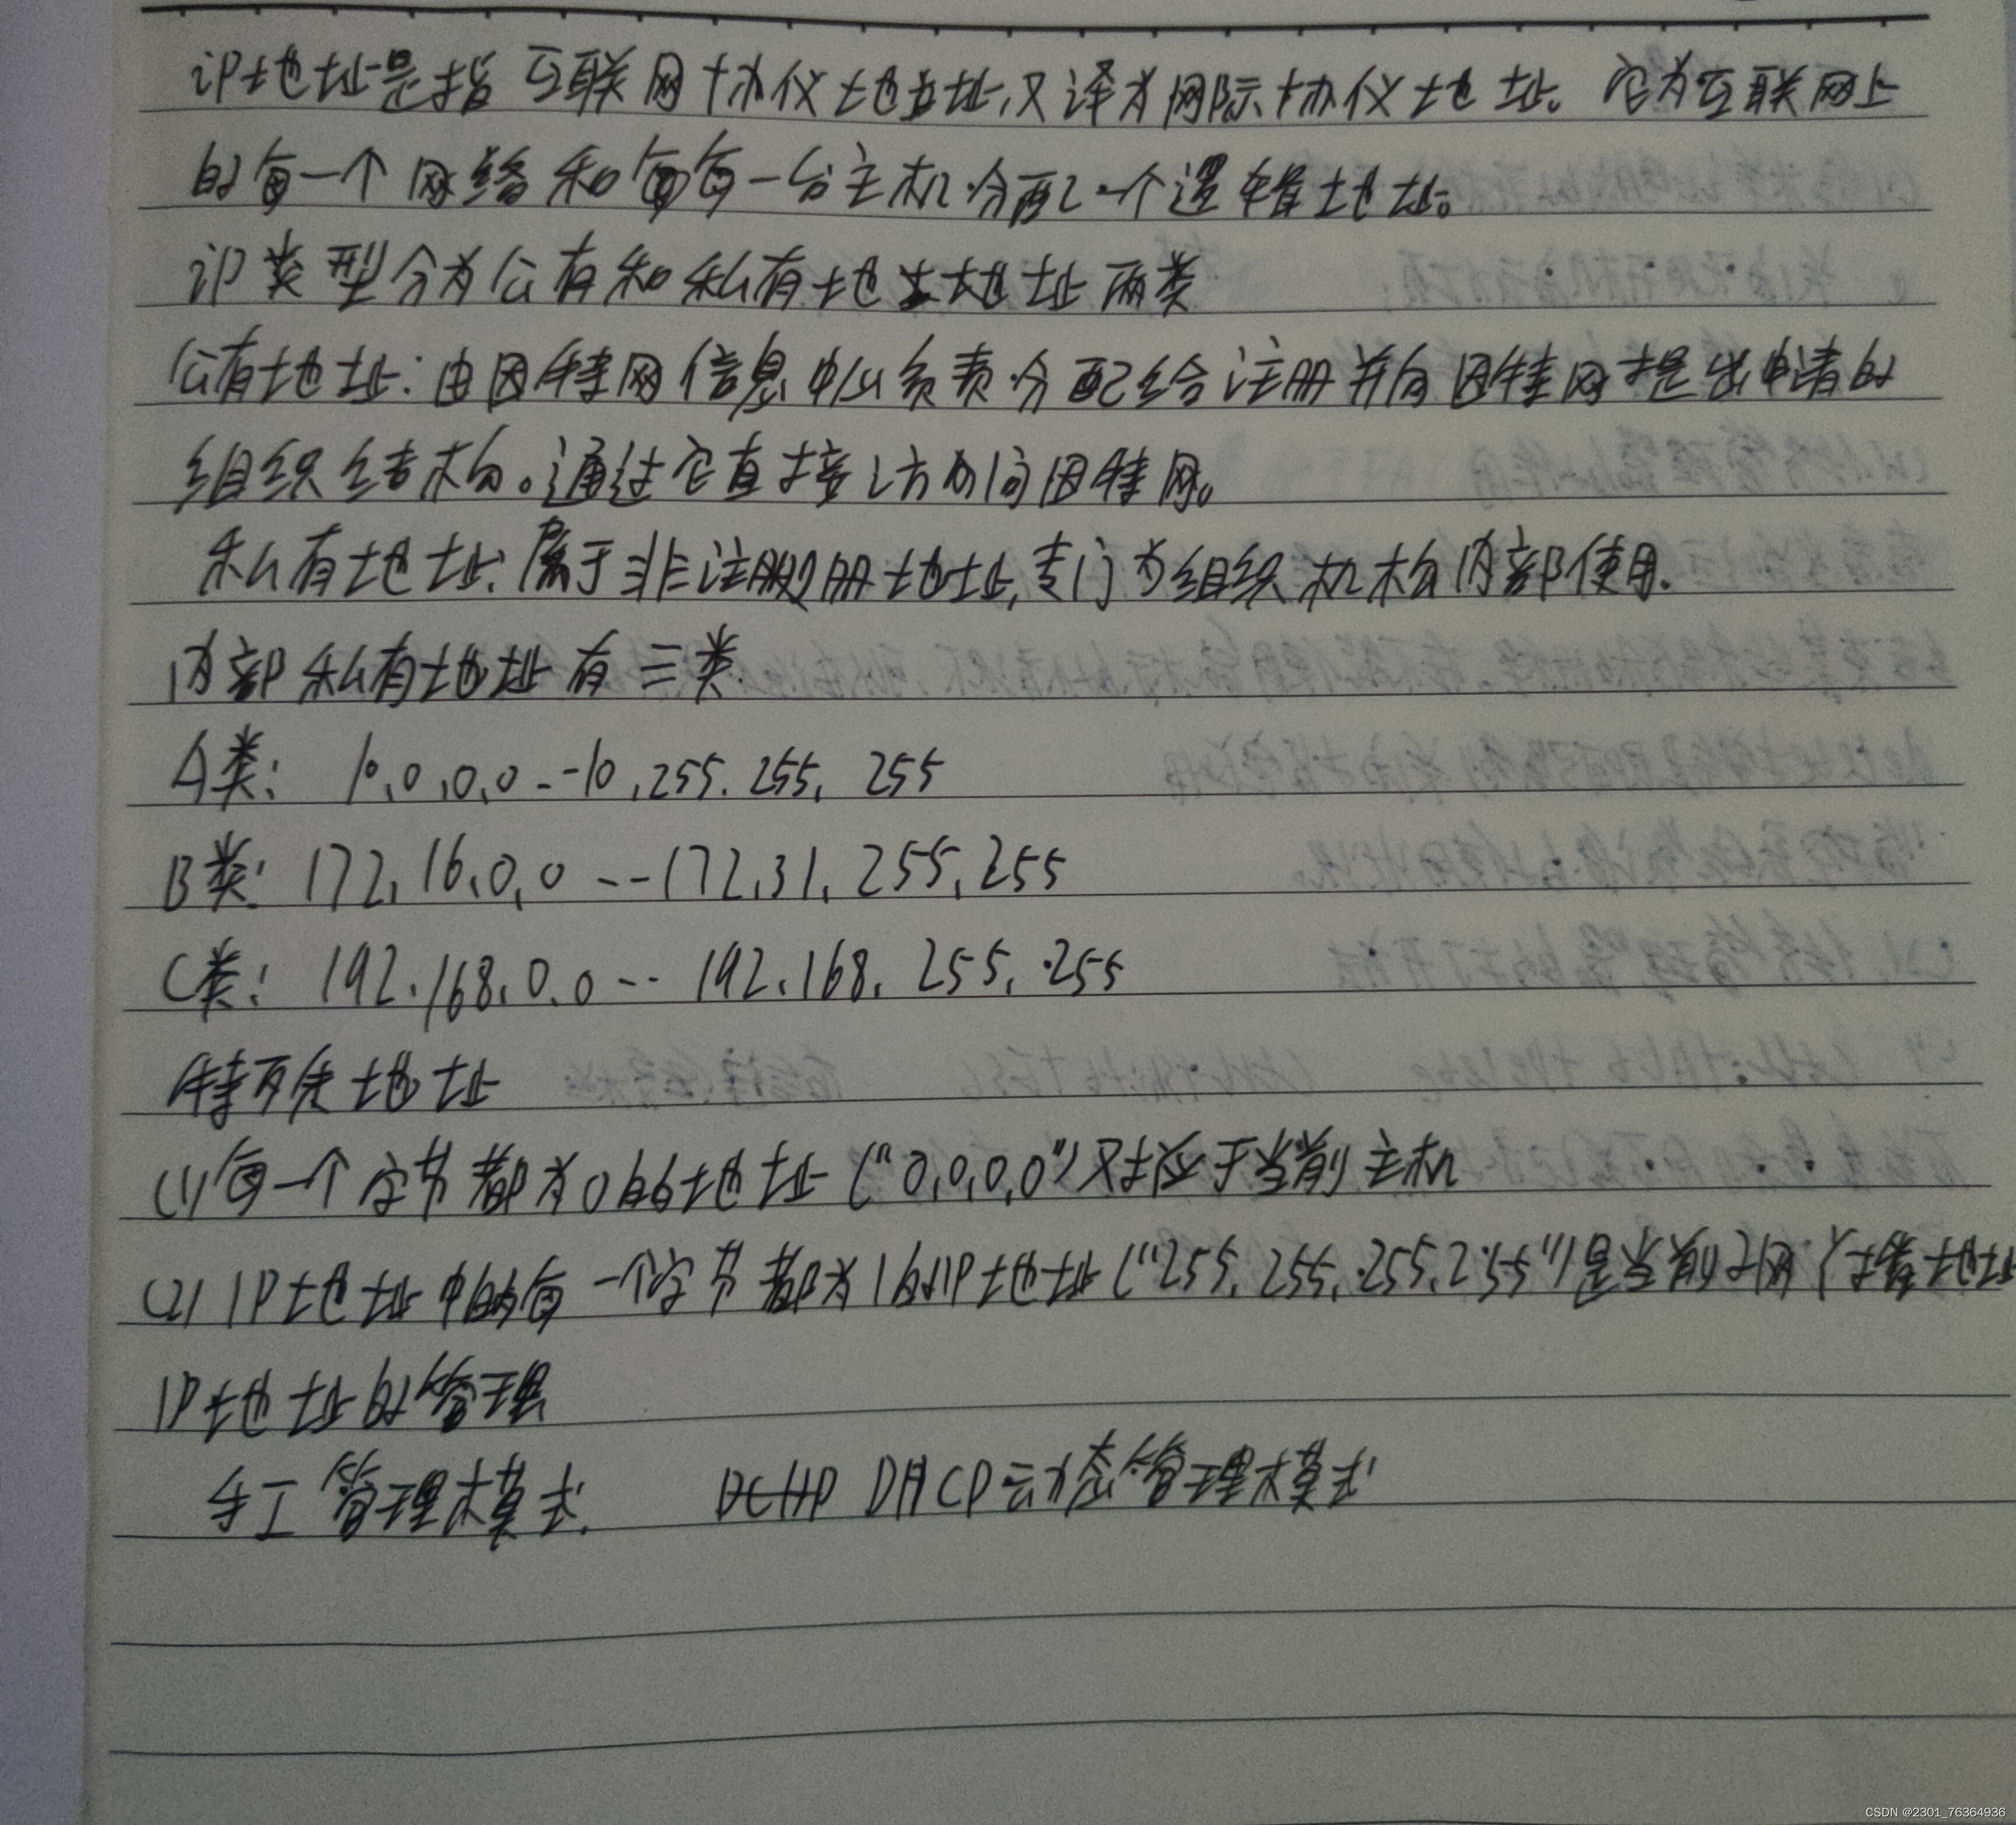 iP地址是指互联网协仪地址,又译为网际协仪地址。它为互联网上
的每一个网络和每一台主机分配一个逻辑地址。
iP类型分为公有和私有地址两类
公有地址:由因特网信息中心负责分配给注册并向因特网提出申请的
组织结构。通过它直接访问因特网。
私有地址:属于非注册地址,专门为组织机构内部使用.
内部私有地址有三类.
A类: 10.0.0.0--10.255.255.255
B类: 172.16.0.0---172.31.255.255
C类: 192.168.0.0-- 192.168.255.255
特殊地址
(1)每一个字节都为0的地址("0.0.0.0")对应于当前主机
(2) IP地址中的每一个字节都为1的IP地址("255.255.255.255")是当前子网广播地址
IP地址的管理
手工管理模式. DHCP动态管理模式
CSDN @2301_76364936